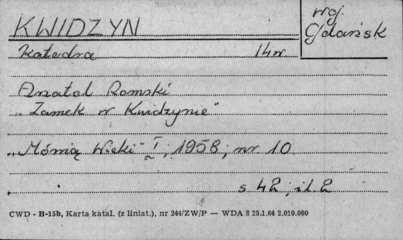 KWIDZYN
woj.
Gdańsk
Katedra 14w.
Anatol Romski
"Zamek w Kwidzynie"
"Mówią Wieki" I, 1958, nr 10
s 42, il. 2
CWD - B-15b, Karta katal. (z liniat.), nr 244/ZW/P — WDA 8 25.1.64 2.010.000